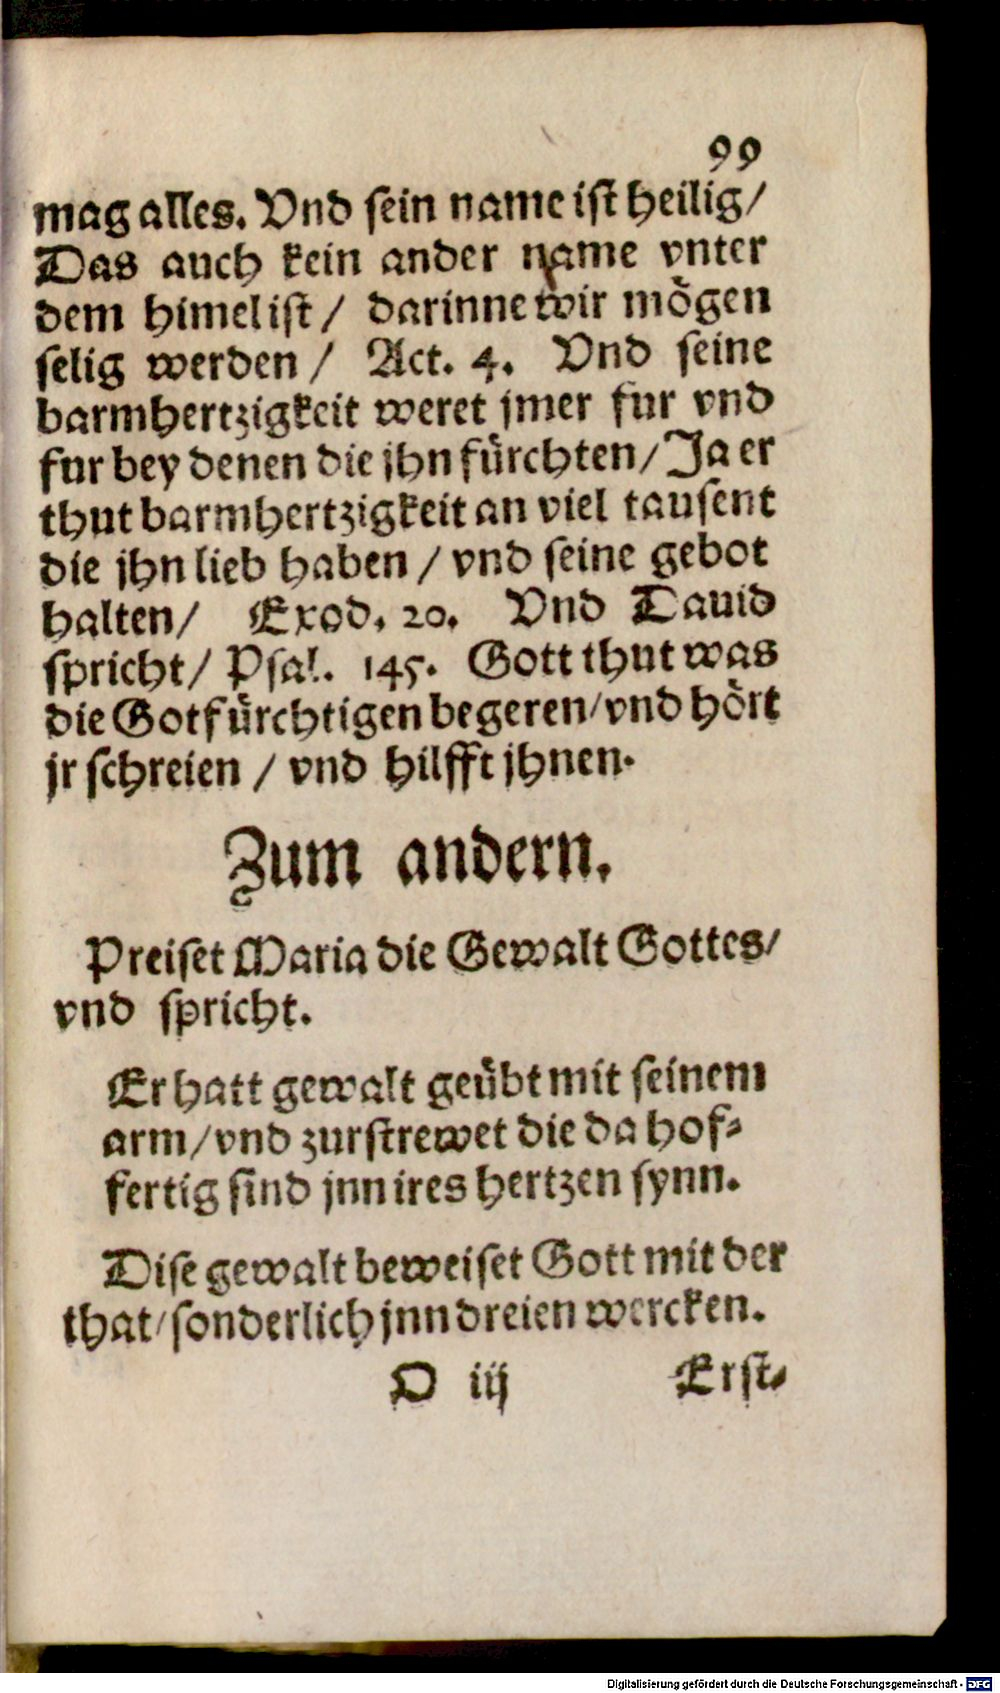 99
mag alles. Vnd sein name ist heilig/
Das auch kein ander name vnter
dem himel ist / darinne wir mögen
selig werden / Act. 4. Vnd seine
barmhertzigkeit weret jmer fur vnd
fur bey denen die jhn fürchten/ Ja er
thut barmhertzigkeit an viel tausent
die jhn lieb haben / vnd seine gebot
halten/ Exod. 20. Vnd Dauid
spricht/ Psal. 145. Gott thut was
die Gotfürchtigen begeren/vnd hört
jr schreien / vnd hilfft jhnen.
Zum andern.
Preiset Maria die Gewalt Gottes/
vnd spricht.
Er hatt gewalt geübt mit seinem
arm/vnd zurstrewet die da hof-
fertig sind jnn ires hertzen synn.
Dise gewalt beweiset Gott mit der
that/sonderlich jnn dreien wercken.
O iij Erst-
Digitalisierung gefördert durch die Deutsche Forschungsgemeinschaft - DFG